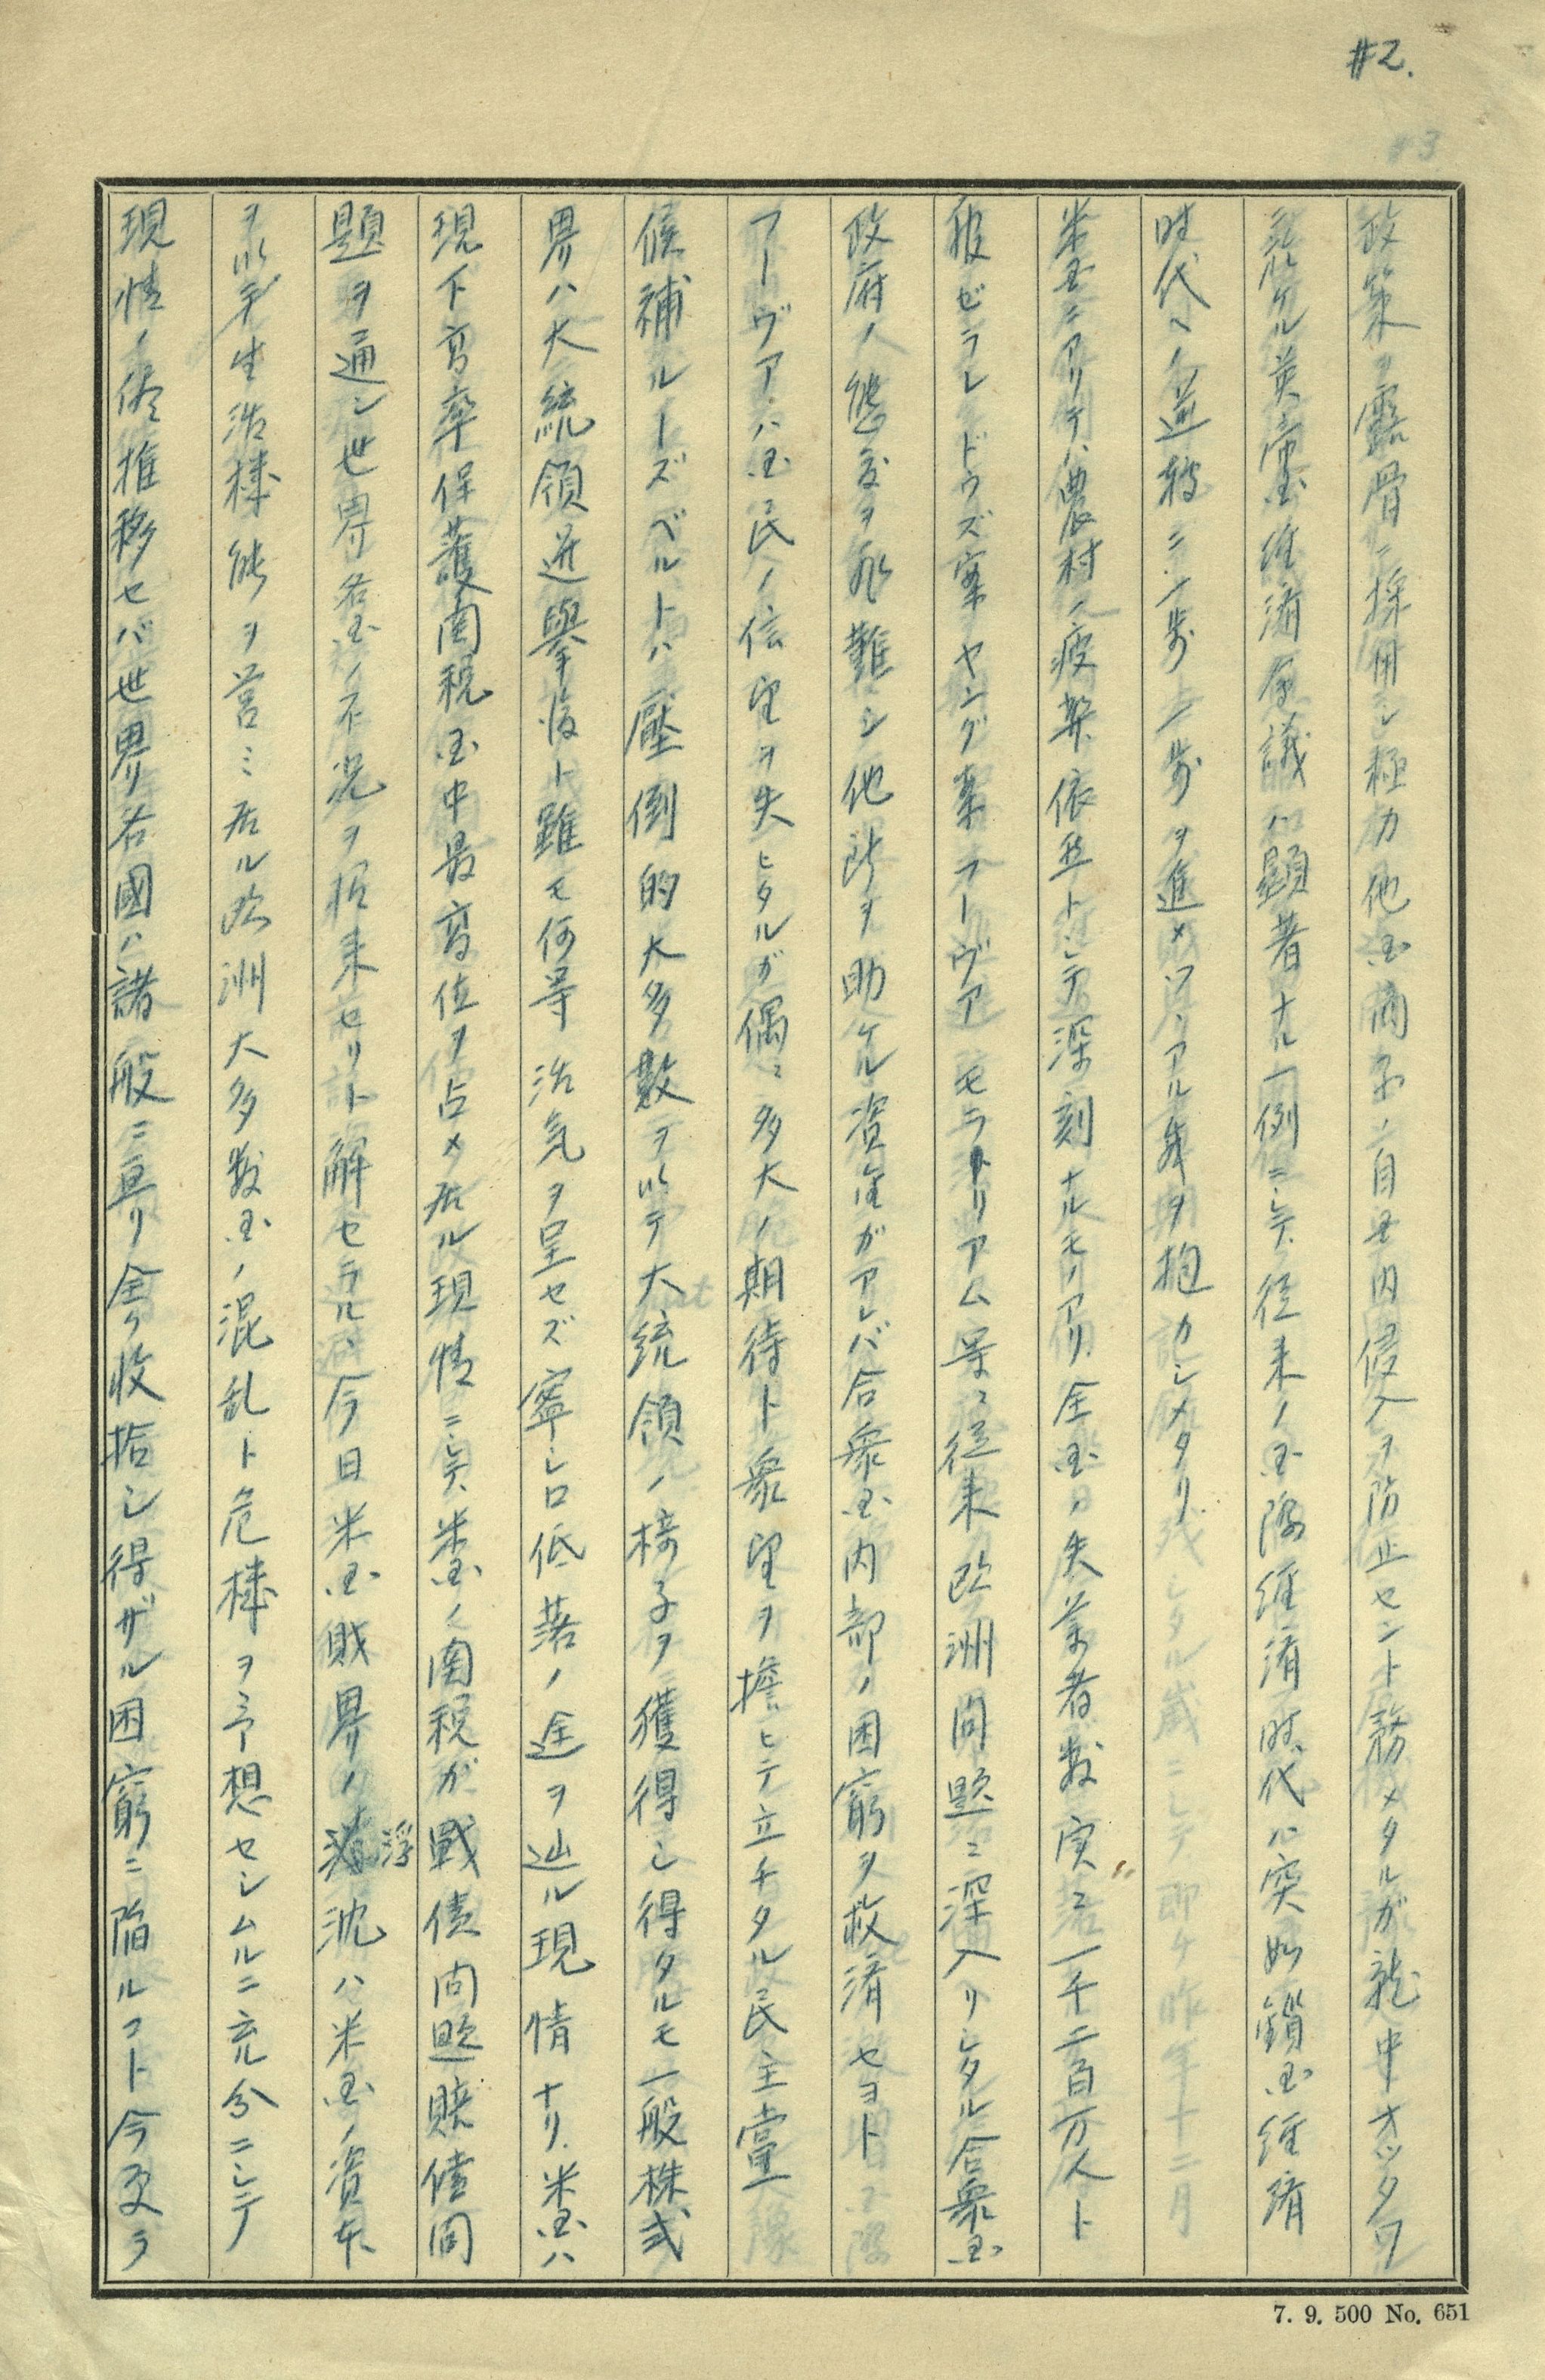 #2.
#3
政策ヲ露骨ニ採用シ極力他国商品ノ自国内侵入ヲ防止セント務メタルガ就中オッタワ
ニ於ケル英帝国経済会議ハ顕著ナル一例ニシテ、従来ノ国際経済時代ハ突如鎖国経済
時代ヘノ逆転ニ一歩一歩ヲ進メツヽアル感ヲ抱カシメタリ
米国ニアリテハ農村ノ疲弊依然トシテ深刻ナルモノアリ、全国ノ失業者数実ニ一千二百万人ト
報ゼラレ ドウズ案ヤング案フーヴアモラトリアム等ニ従来欧洲問題ニ深入リシタル合衆国
政府ノ態度ヲ非難シ他所ヲ助ケル資金ガアレバ合衆国内部ノ困窮ヲ救済セヨト
フーヴアハ国民ノ信望ヲ失ヒタルガ偶ニ多大ノ期待ト衆望ヲ擔ヒテ立チタル民主黨
候補ルーズベルトハ壓倒的大多数ヲ以テ大統領ノ椅子ヲ獲得シ得タルモ一般株式
界ハ大統領選擧後ト雖モ何等活気ヲ呈セズ寧シロ低落ノ途ヲ辿ル現情ナリ、米国ハ
現下高率保護関税国中最高位ヲ占メ居ル現情ニシテ、米国ノ関税ガ戦債問題賠償問
題ヲ通シ世界各国ノ不況ヲ招来セリト解セラル、今日米国財界ノ浮沈ハ米国ノ資本
ヲ以テ生活機能ヲ営ミ居ル欧洲大多数国ノ混乱ト危機ヲ予想セシムルニ充分ニシテ
現情ノ儘推移セバ世界各國ハ諸般ニ亘リ全ク收拾シ得ザル困窮ニ陥ルコト今更ラ
7. 9. 500 No. 651